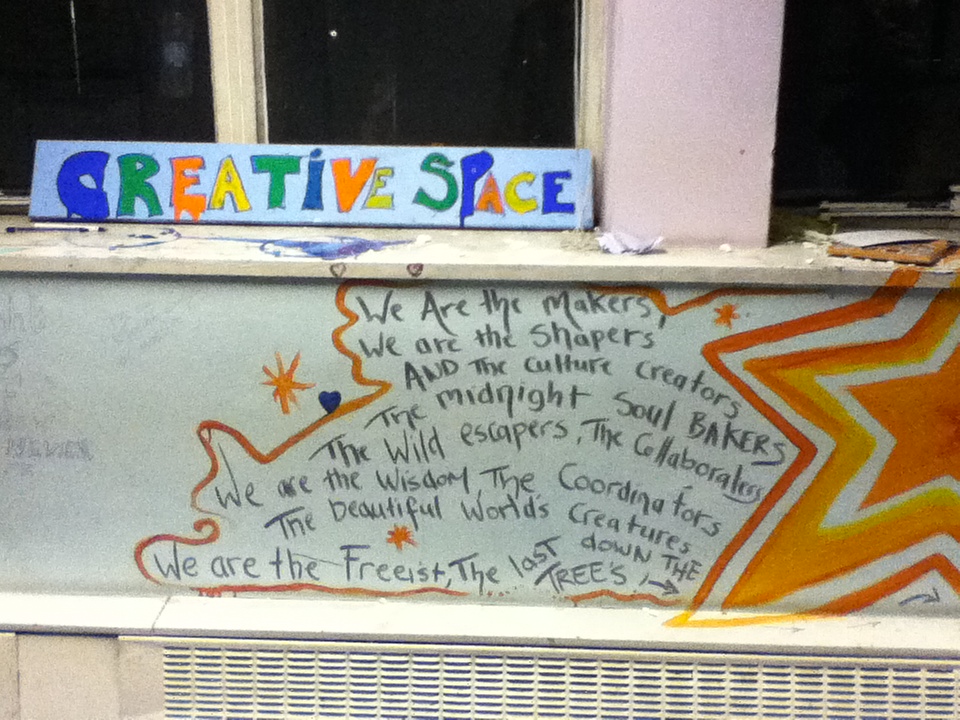 CREATiVE SPACE
We Are the Makers,
We are the Shapers
AND The culture creators
The midnight Soul BAKERS
The Wild escapers, The Collaboraters
We are the Wisdom The Coordinators
The beautiful World's Creatures
We are the Freeist, The last down THE
TREE'S